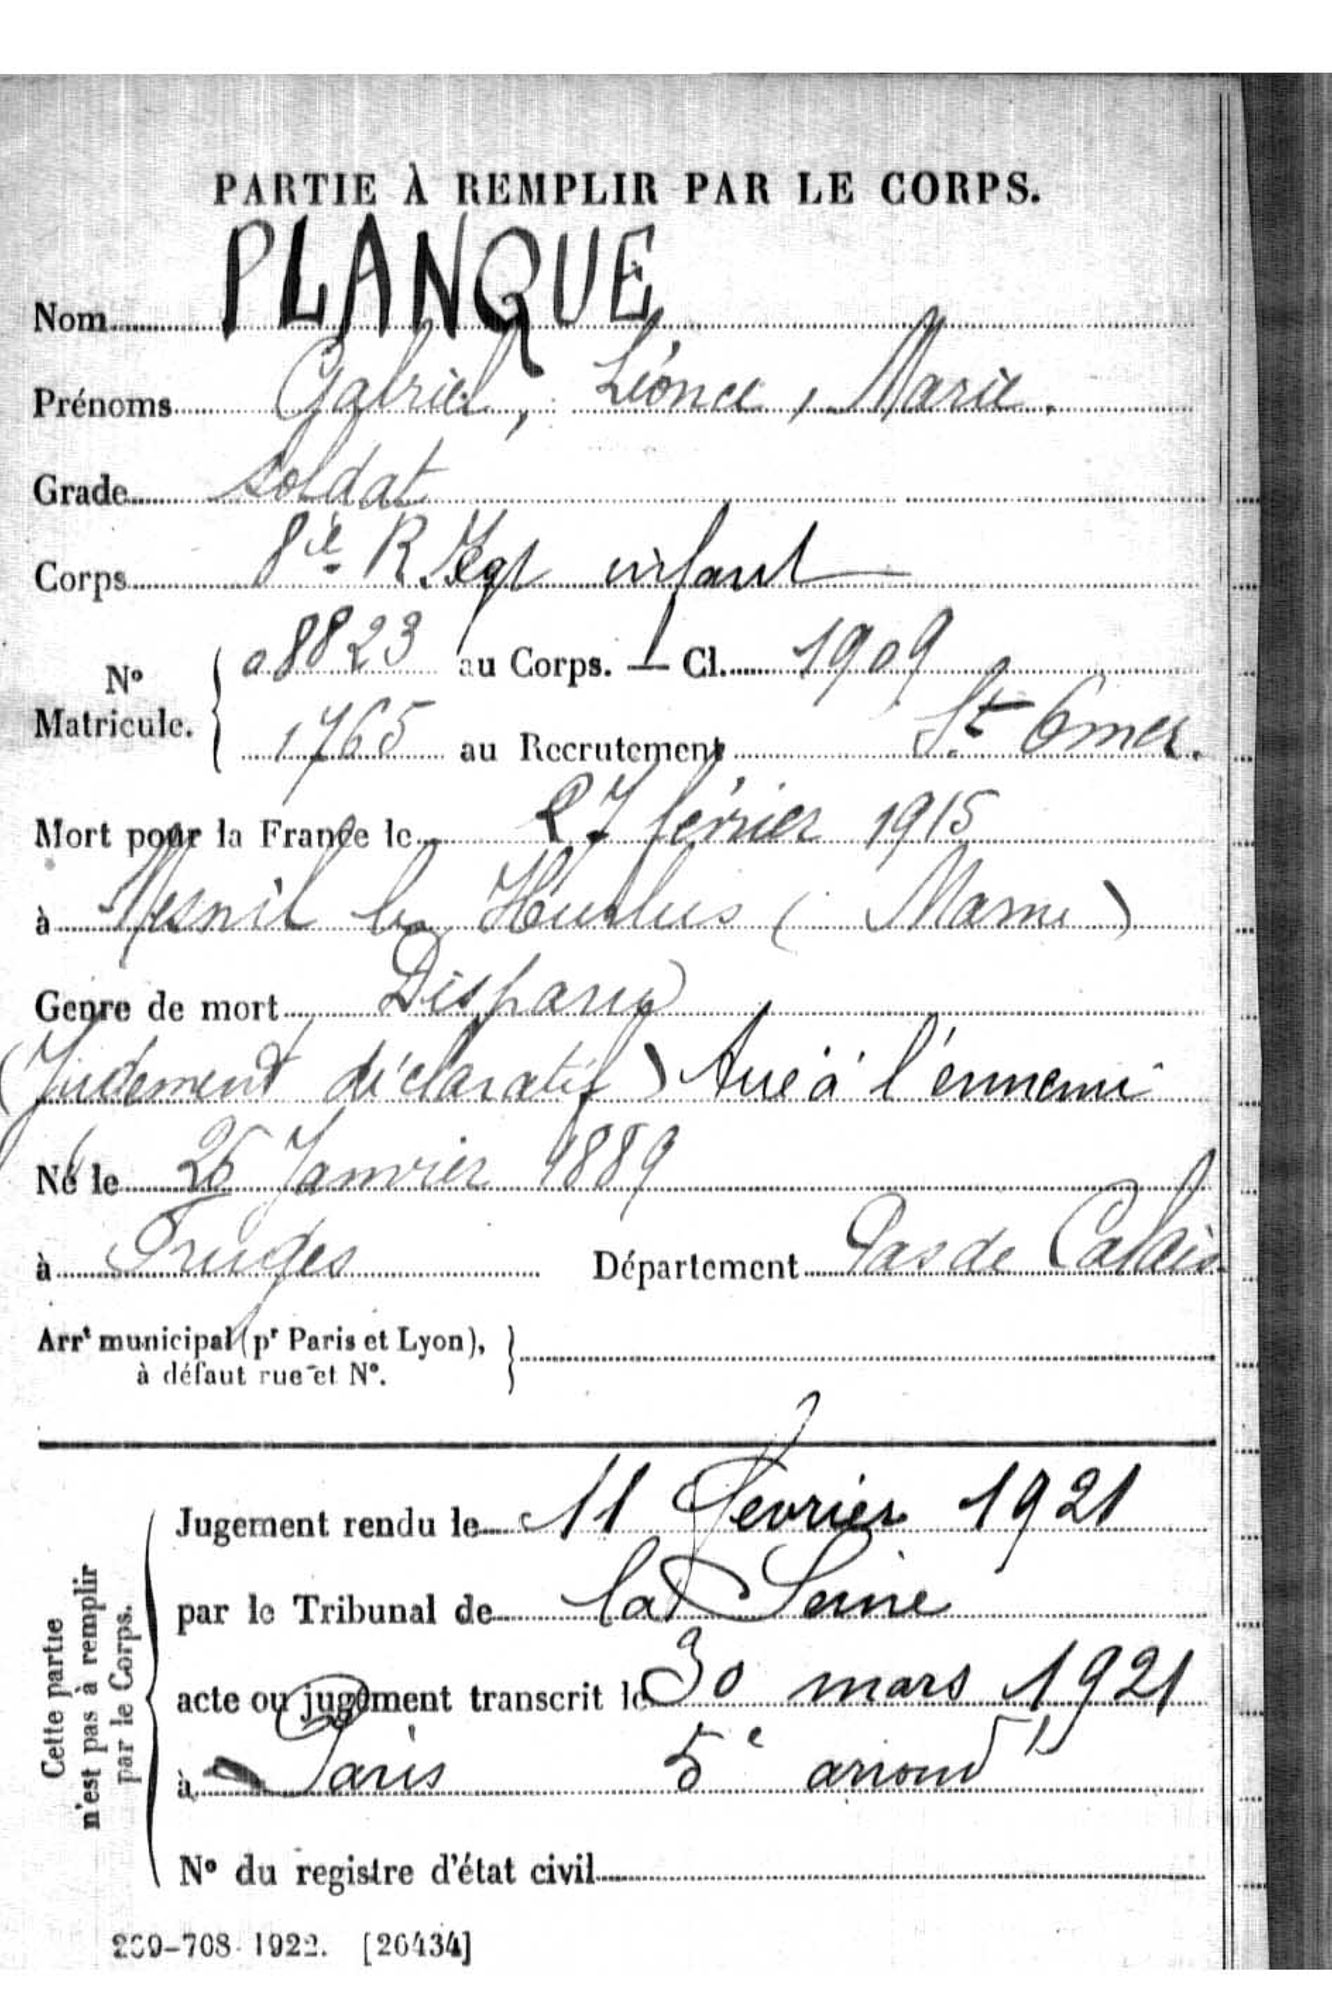 PARTIE À REMPLIR PAR LE CORPS.
Nom PLANQUE
Prénoms Gabriel, Léonce, Marie.
Grade soldat
Corps 8ie R. Regt infant
N° Matricule. 08823 au Corps. — Cl. 1909
1765 au Recrutement St Omer.
Mort pour la France le 27 février 1915
à Mesnil les Hurlus (Marne)
Genre de mort Disparu
(Judement déclaratif) tué à l'ennemi
Né le 26 Janvier 1889
à Fruges Département Pas de Calais
Arrt municipal (pr Paris et Lyon),
à défaut rue et N°.
Cette partie
n'est pas à remplir
par le Corps.
Jugement rendu le 11 fevrier 1921
par le Tribunal de la Seine
acte ou jugement transcrit le 30 mars 1921
à Paris 5e arrondt
N° du registre d'état civil
269-708-1922. [26434]